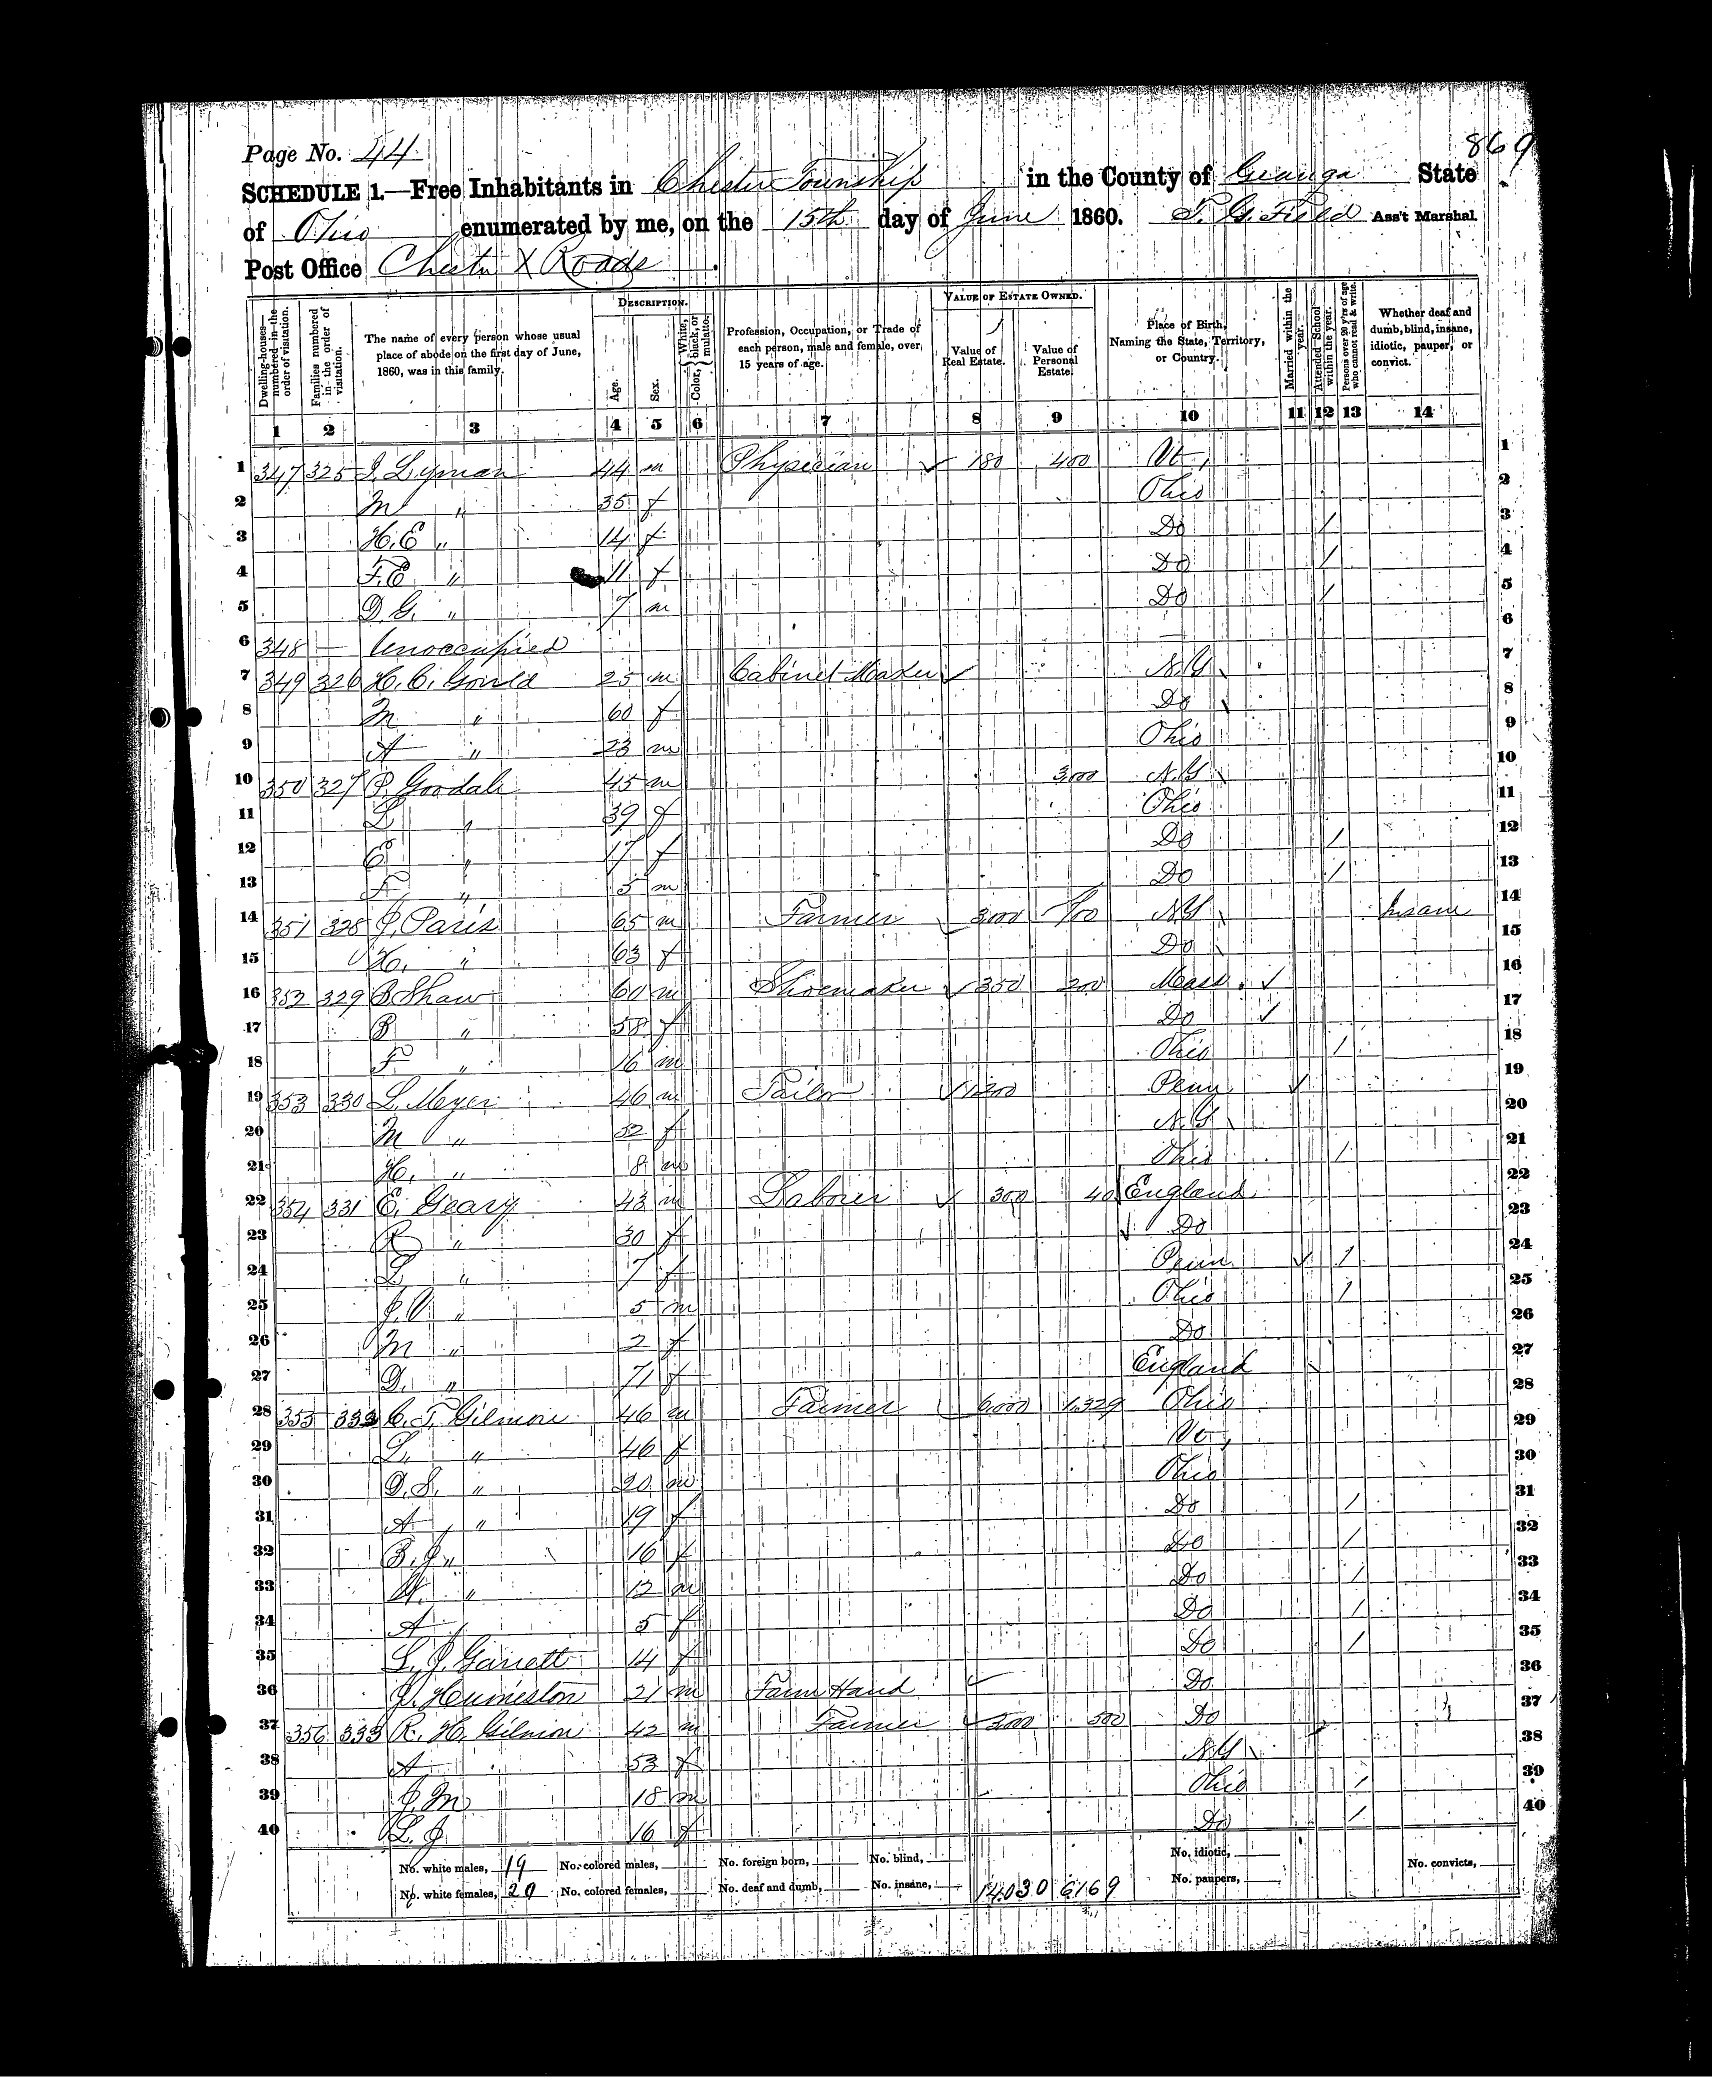 Page No. 44
869
SCHEDULE 1.—Free Inhabitants in Chester Township in the County of Geauga State
of Ohio enumerated by me, on the 15th day of June 1860. T. G. Field Ass't Marshal.
Post Office Chester X Roads
Dwelling-houses—numbered in the order of visitation. Families numbered in the order of visitation. The name of every person whose usual place of abode on the first day of June, 1860, was in this family. DESCRIPTION. Age. Sex. Color, White, black, or mulatto. Profession, Occupation, or Trade of each person, male and female, over 15 years of age. VALUE OF ESTATE OWNED. Value of Real Estate. Value of Personal Estate. Place of Birth, Naming the State, Territory, or Country. Married within the year. Attended School within the year. Persons over 20 y'rs of age who cannot read & write. Whether deaf and dumb, blind, insane, idiotic, pauper, or convict.
1 2 3 4 5 6 7 8 9 10 11 12 13 14
1 347 325 J. Lyman 44 m Physician ✓ 180 400 Vt, 1
2 M " 35 f Ohio 2
3 H. E " 14 f Do / 3
4 F. E " 11 f Do / 4
5 D. G. " 7 m Do / 5
6 348 — Unoccupied — 6
7 349 326 H. C. Gould 25 m Cabinet Maker ✓ N.Y 7
8 M " 60 f Do 8
9 A " 23 m Ohio 9
10 350 327 P. Goodale 45 m 3,000 N.Y 10
11 L " 39 f Ohio 11
12 E " 17 f Do / 12
13 F " 5 m Do / 13
14 351 328 J. Paris 65 m Farmer ✓ 3000 N.Y Insane 14
15 H. " 63 f Do 15
16 352 329 B Shaw 60 m Shoemaker ✓ 350 200 Mass. ✓ 16
17 B " 58 f Do ✓ 17
18 F " 16 m Ohio / 18
19 353 330 L. Meyer 46 m Tailor ✓ 1200 Penn ✓ 19
20 M " 52 f N.Y 20
21 H. " 8 m Ohio / 21
22 354 331 E. Geary 43 m Laborer ✓ 300 40 England 22
23 R " 30 f ✓ Do 23
24 L " 7 f Penn ✓ / 24
25 J. V " 5 m Ohio / 25
26 M " 2 f Do 26
27 D. " 71 f England 27
28 355 332 C. T. Gilmore 46 m Farmer 6,000 1,329 Ohio 28
29 L. " 46 f Vt, 29
30 D. S. " 20 m Ohio 30
31 A " 19 f Do / 31
32 B. J " 16 f Do / 32
33 W. " 12 m Do / 33
34 A " 5 f Do / 34
35 L. J. Garrett 14 f Do / 35
36 J. Humeston 21 m Farm Hand ✓ Do 36
37 356 333 R. H. Gilmore 42 m Farmer ✓ 3000 500 Do 37
38 A 53 f N.Y 38
39 J. M 18 m Ohio / 39
40 L. J 16 f Do / 40
No. white males, 19 No. colored males, No. foreign born, No. blind, No. idiotic, No. convicts,
No. white females, 20 No. colored females, No. deaf and dumb, No. insane, 14.030 6169 No. paupers,